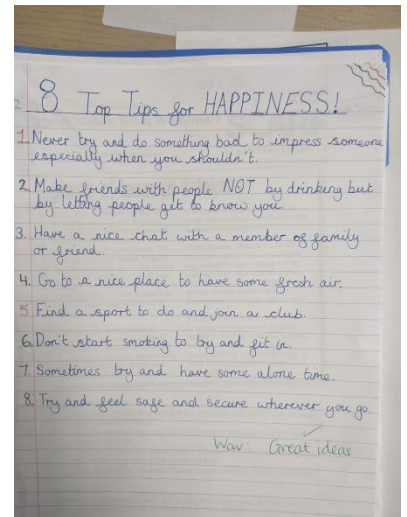 8 Top Tips for HAPPINESS!
1. Never try and do something bad to impress someone
especially when you shouldn't.
2. Make friends with people NOT by drinking but
by letting people get to know you
3. Have a nice chat with a member of family
or friend.
4. Go to a nice place to have some fresh air.
5. Find a sport to do and join a club.
6. Don't start smoking to try and fit in.
7. Sometimes try and have some alone time.
8. Try and feel safe and secure wherever you go.
Great ideas